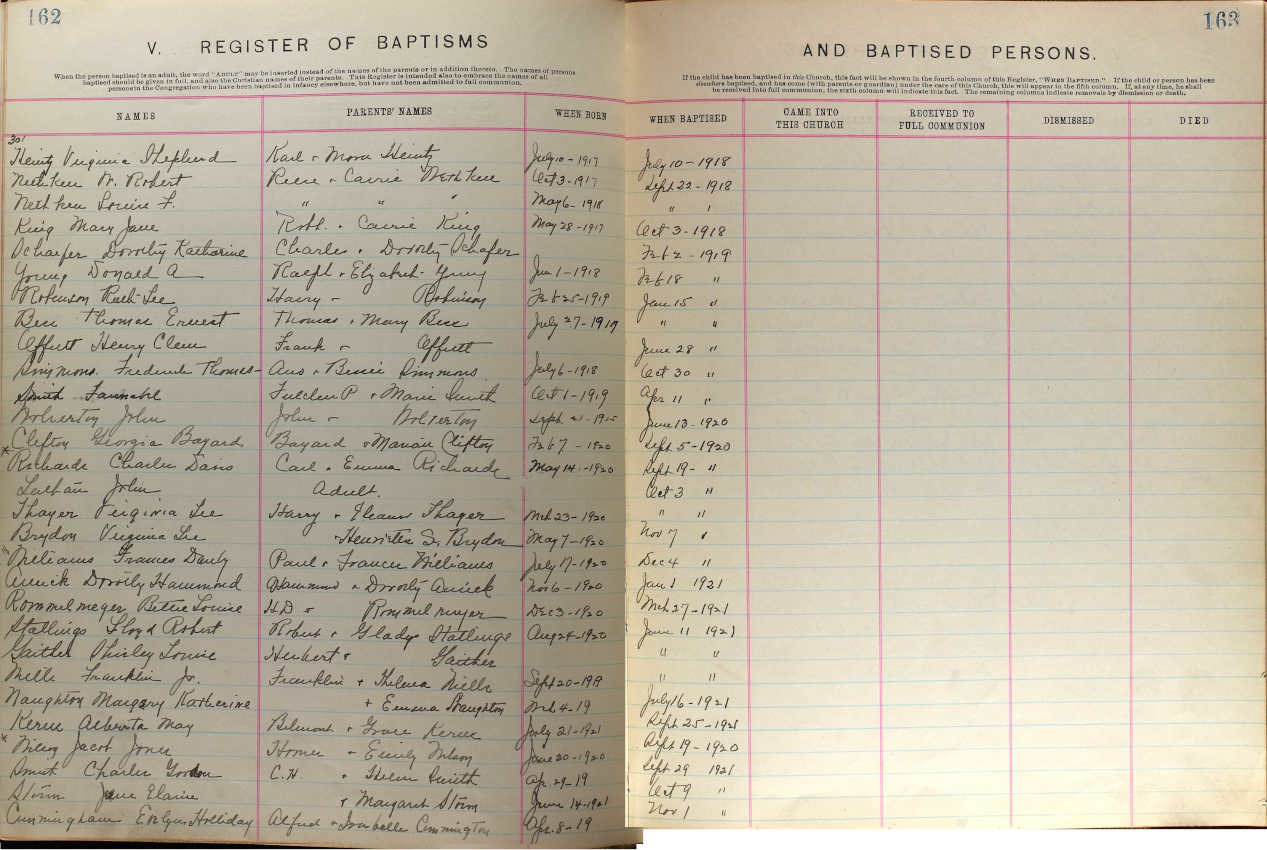 162
V. REGISTER OF BAPTISMS
When the person baptised is an adult, the word "ADULT" may be inserted instead of the names of the parents or in addition thereto. The names of persons
baptised should be given in full, and also the Christian names of their parents. This Register is intended also to embrace the names of all
persons in the Congregation who have been baptised in infancy elsewhere, but have not been admitted to full communion.
NAMES PARENTS' NAMES WHEN BORN
301
Heintz Virginia Shepherd Karl & Heintz July 10-1917
Nethken W. Robert & Carrie Nethken Oct 3-1917
Nethken Louise F. " " " May 6-1918
King Mary Jane Robt. & Carrie King May 28-1917
Schaefer Dorothy Katharine Charles & Dorothy Schafer
Young Donald A Ralph & Elizabeth Young Jan 1-1918
Robinson Ruth Lee Harry & Robinson Feb 25-1919
Thomas Ernest Thomas & Mary July 27-1919
Offutt Henry Clem Frank & Offutt
Simmons. Frederick Thomas & Simmons July 6-1918
Smith Fannabel P & Marie Smith Oct 1-1919
Wolverton John John & Wolverton Sept 21-1915
Clifton Georgia Bayard Bayard & Marian Clifton Feb 7-1920
* Richards Charles Davis Carl & Emma Richards May 14-1920
John Adult.
Thayer Virginia Lee Harry & Eleanor Thayer Mch 23-1920
Brydon Virginia Lee & Henrietta S. Brydon May 7-1920
* Williams Frances Paul & Frances Williams July 17-1920
Dorothy Hammond Hammond & Dorothy Nov 6-1920
Rommelmeyer Bettie Louise H D & Rommelmeyer Dec 3-1920
Stallings Lloyd Robert Robert & Gladys Stallings Aug 24-1920
Gaither Shirley Louise Herbert & Gaither
Mills Franklin Jr. Franklin & Thelma Mills Sept 20-1919
Naughton Margary Katherine & Emma Naughton Mch 4-19
Alberta May Belmont & Grace July 21-1921
* Jacob Jones Homer & Emily June 20-1920
Smith Charles Gordon C.H. & Helen Smith Apr. 29-19
Storm Jane Elaine & Margaret Storm June 14-1921
Cunningham Evelyn Holliday Alfred & Isabelle Apr. 8-19
163
AND BAPTISED PERSONS.
If the child has been baptised in this Church, this fact will be shown in the fourth column of this Register, "WHEN BAPTISED." If the child or person has been
elsewhere baptised, and has come (with parents or guardian) under the care of this Church, this will appear in the fifth column. If, at any time, he shall
be received into full communion, the sixth column will indicate this fact. The remaining columns indicate removals by dismission or death.
WHEN BAPTISED CAME INTO THIS CHURCH RECEIVED TO FULL COMMUNION DISMISSED DIED
July 10-1918
Sept 22-1918
" "
Oct 3-1918
Feb 2-1919
Feb 18 "
Jan 15 "
" "
June 28 "
Oct 30 "
Apr 11 "
June 13-1920
Sept 5-1920
Sept 19- "
Oct 3 "
" "
Nov 7 "
Dec 4 "
Jan 1 1921
Mch 27-1921
June 11 1921
" "
" "
July 16-1921
Sept 25-1921
Sept 19-1920
Sept 29 1921
Oct 9 "
Nov 1 "